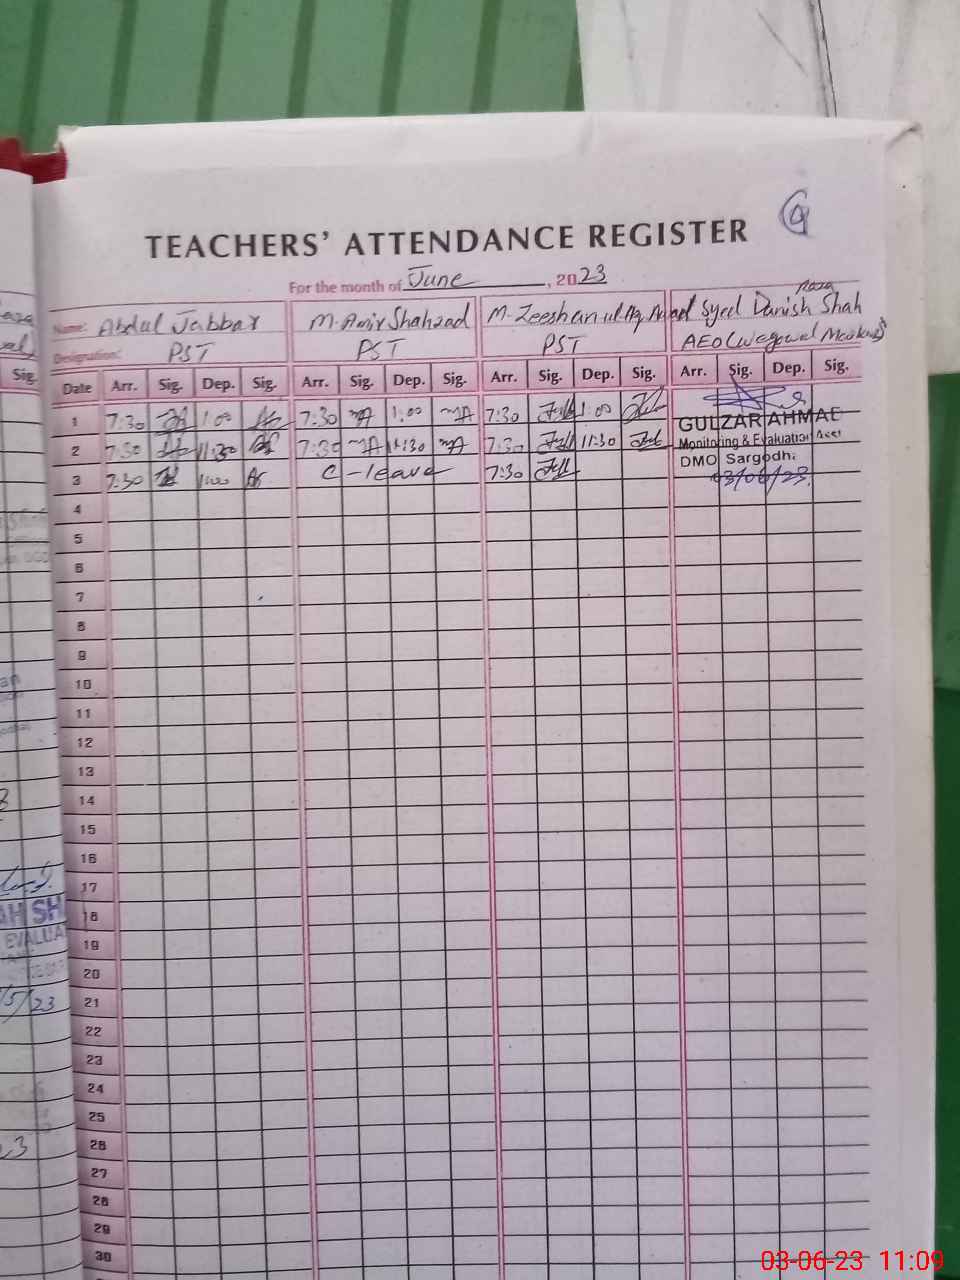 TEACHERS' ATTENDANCE REGISTER
For the month of June, 2023
Name: Abdul Jabbar M. Amir Shahzad M. Zeeshan ul Syed Danish Raza Shah
Designation: PST PST PST AEO
Date Arr. Sig. Dep. Sig. Arr. Sig. Dep. Sig. Arr. Sig. Dep. Sig. Arr. Sig. Dep. Sig.
1 7:30 1:00 7:30 MA 1:00 MA 7:30 1:00
GULZAR AHMAD
2 7:30 11:30 7:30 MA 11:30 MA 7:30 11:30
Monitoring & Evaluation
DMO Sargodha
3 7:30 1:00 C-leave 7:30
03/06/23
4
5
6
7
8
9
10
11
12
13
14
15
16
17
18
19
20
21
22
23
24
25
26
27
28
29
30
Sig.
AH SH
EVALUA
/5/23
03-06-23 11:09